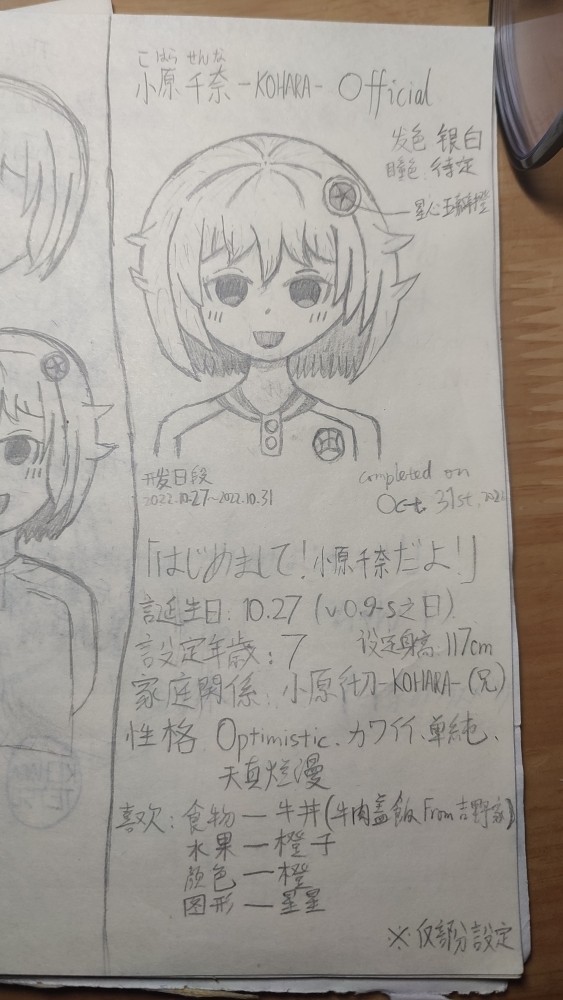 こはら せんな
小原 千奈 -KOHARA- Official
发色 银白
瞳色 待定
星心五瓣橙
开发日段
2022.10.27~2022.10.31
completed on
Oct 31st, 2022
「はじめまして!小原千奈だよ!」
誕生日: 10.27 (v0.9-S之日)
設定年歳: 7 设定身高: 117cm
家庭関係: 小原 -KOHARA- (兄)
性格 Optimistic、カワイイ、単純、
天真烂漫
喜欢: 食物 — 牛丼(牛肉盖飯 From 吉野家)
水果 — 橙子
颜色 — 橙
图形 — 星星
※ 仅部分設定